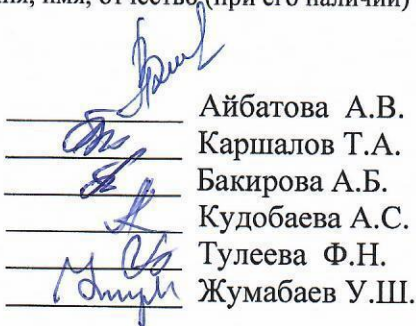 имя, отчество (при его наличии)
Айбатова А.В.
Каршалов Т.А.
Бакирова А.Б.
Кудобаева А.С.
Тулеева Ф.Н.
Жумабаев У.Ш.